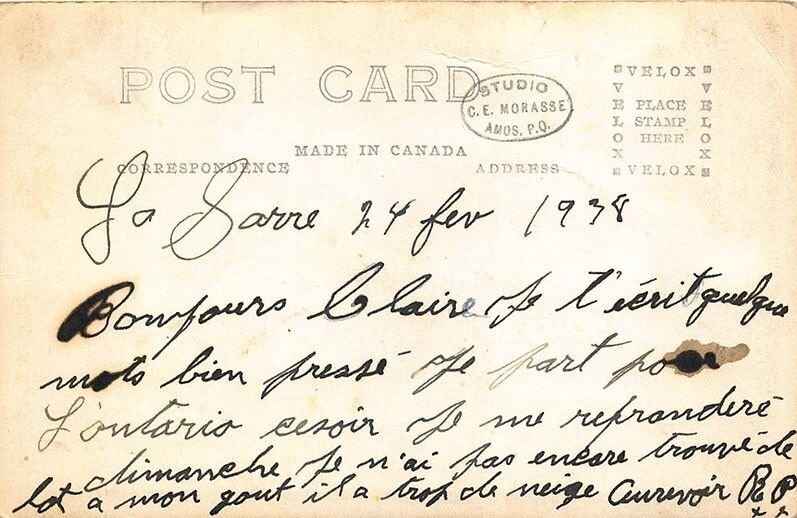 POST CARD
STUDIO
C. E. MORASSE
AMOS, P.Q.
VELOX
VELOX
VELOX
PLACE
STAMP
HERE
VELOX
MADE IN CANADA
CORRESPONDENCE
ADDRESS
La Sarre 24 fev 1938
Bonjours Claire Je t'écrit quelque
mots bien pressé Je part pour
L'ontario cesoir Je me reprenderé
dimanche Je n'ai pas encore trouvé de
lot a mon gout il a trop de neige Aurevoir R P
x x